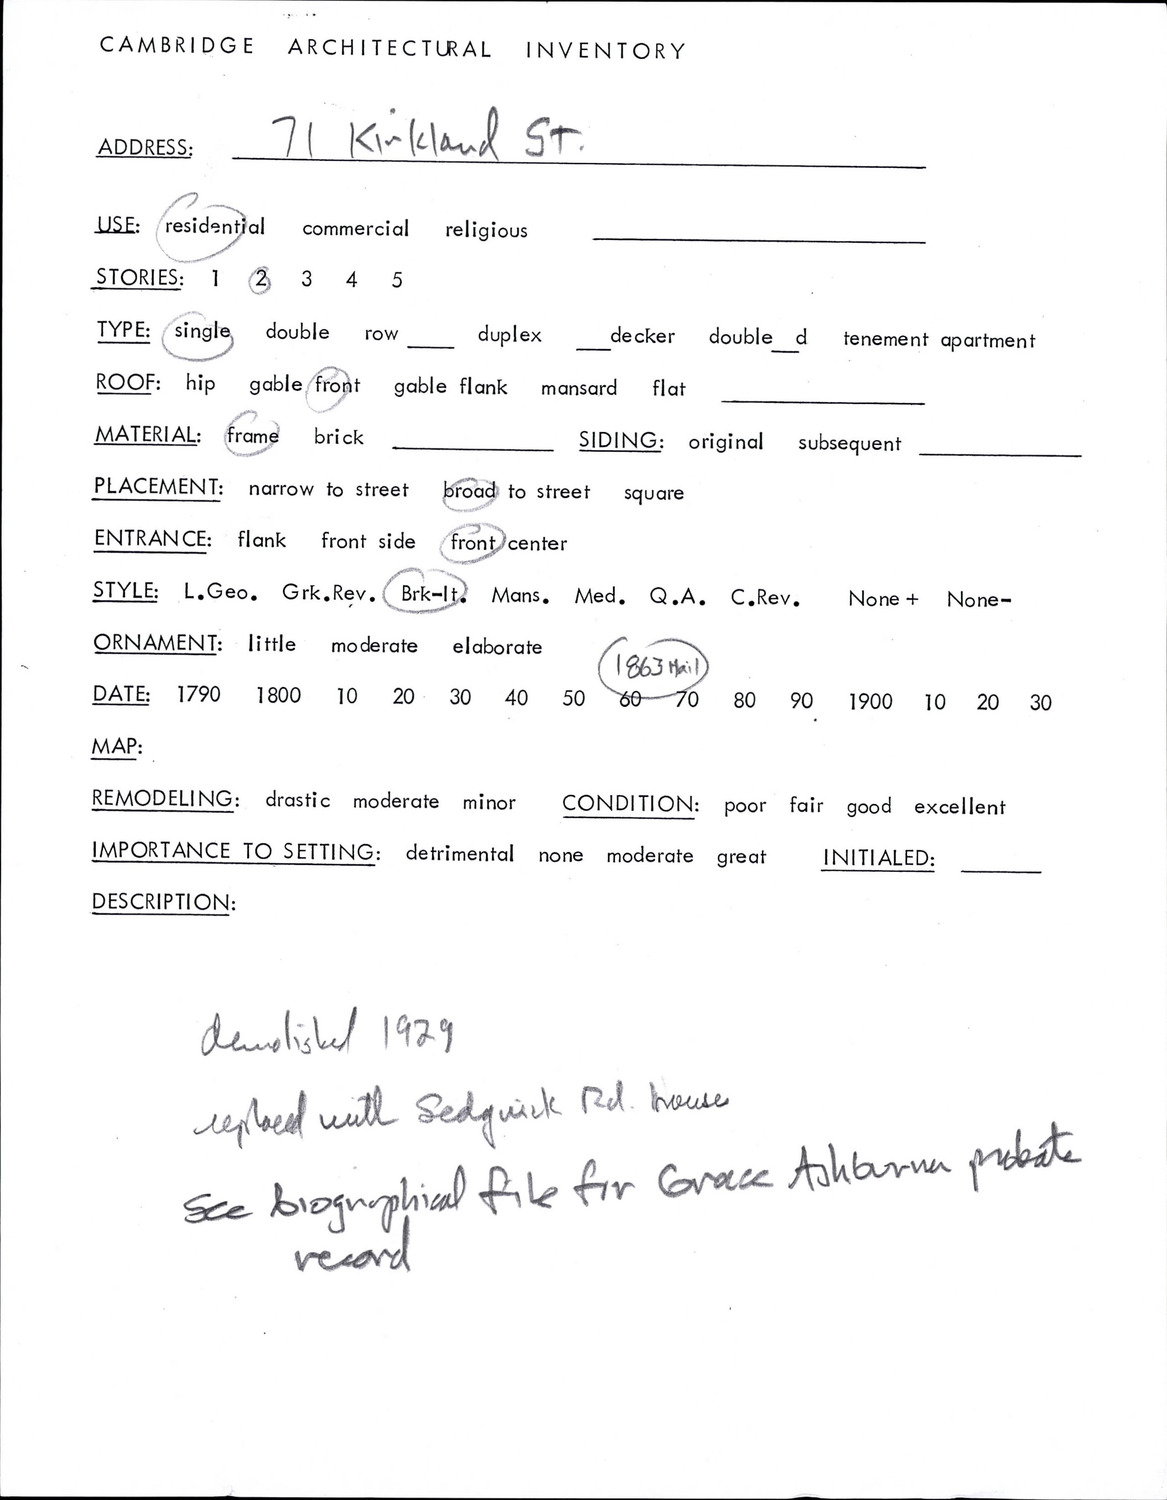 CAMBRIDGE ARCHITECTURAL INVENTORY
ADDRESS: 71 Kirkland St.
USE: residential commercial religious
STORIES: 1 2 3 4 5
TYPE: single double row ____ duplex ___decker double__d tenement apartment
ROOF: hip gable front gable flank mansard flat
MATERIAL: frame brick ____ SIDING: original subsequent ____
PLACEMENT: narrow to street broad to street square
ENTRANCE: flank front side front center
STYLE: L.Geo. Grk.Rev. Brk-It. Mans. Med. Q.A. C.Rev. None + None-
ORNAMENT: little moderate elaborate
1863
DATE: 1790 1800 10 20 30 40 50 60 70 80 90 1900 10 20 30
MAP:
REMODELING: drastic moderate minor CONDITION: poor fair good excellent
IMPORTANCE TO SETTING: detrimental none moderate great INITIALED: ____
DESCRIPTION:
demolished 1929
replaced with Sedgwick Rd. houses
See biographical file for Grace Ashburner probate
record